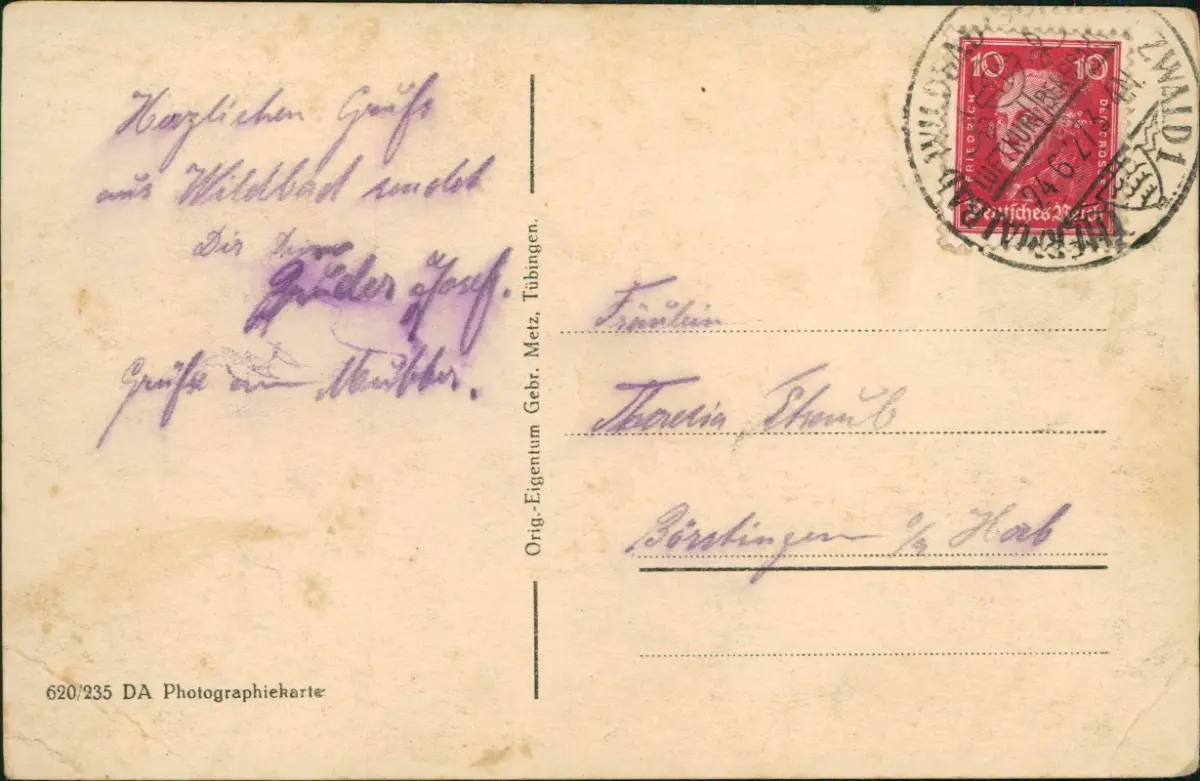 Herzlichen Gruß
aus Wildbad sendet
Dir Dein
Bruder Josef.
Grüße an Mutter.
620/235 DA Photographiekarte
Orig.-Eigentum Gebr. Metz, Tübingen.
10 10
FRIEDRICH DER GROSSE
Deutsches Reich
WILDBAD
THERMALBAD
LUFTKURORT
24.6.27
Fräulein
Theresia Straub
Börstingen o/a Horb